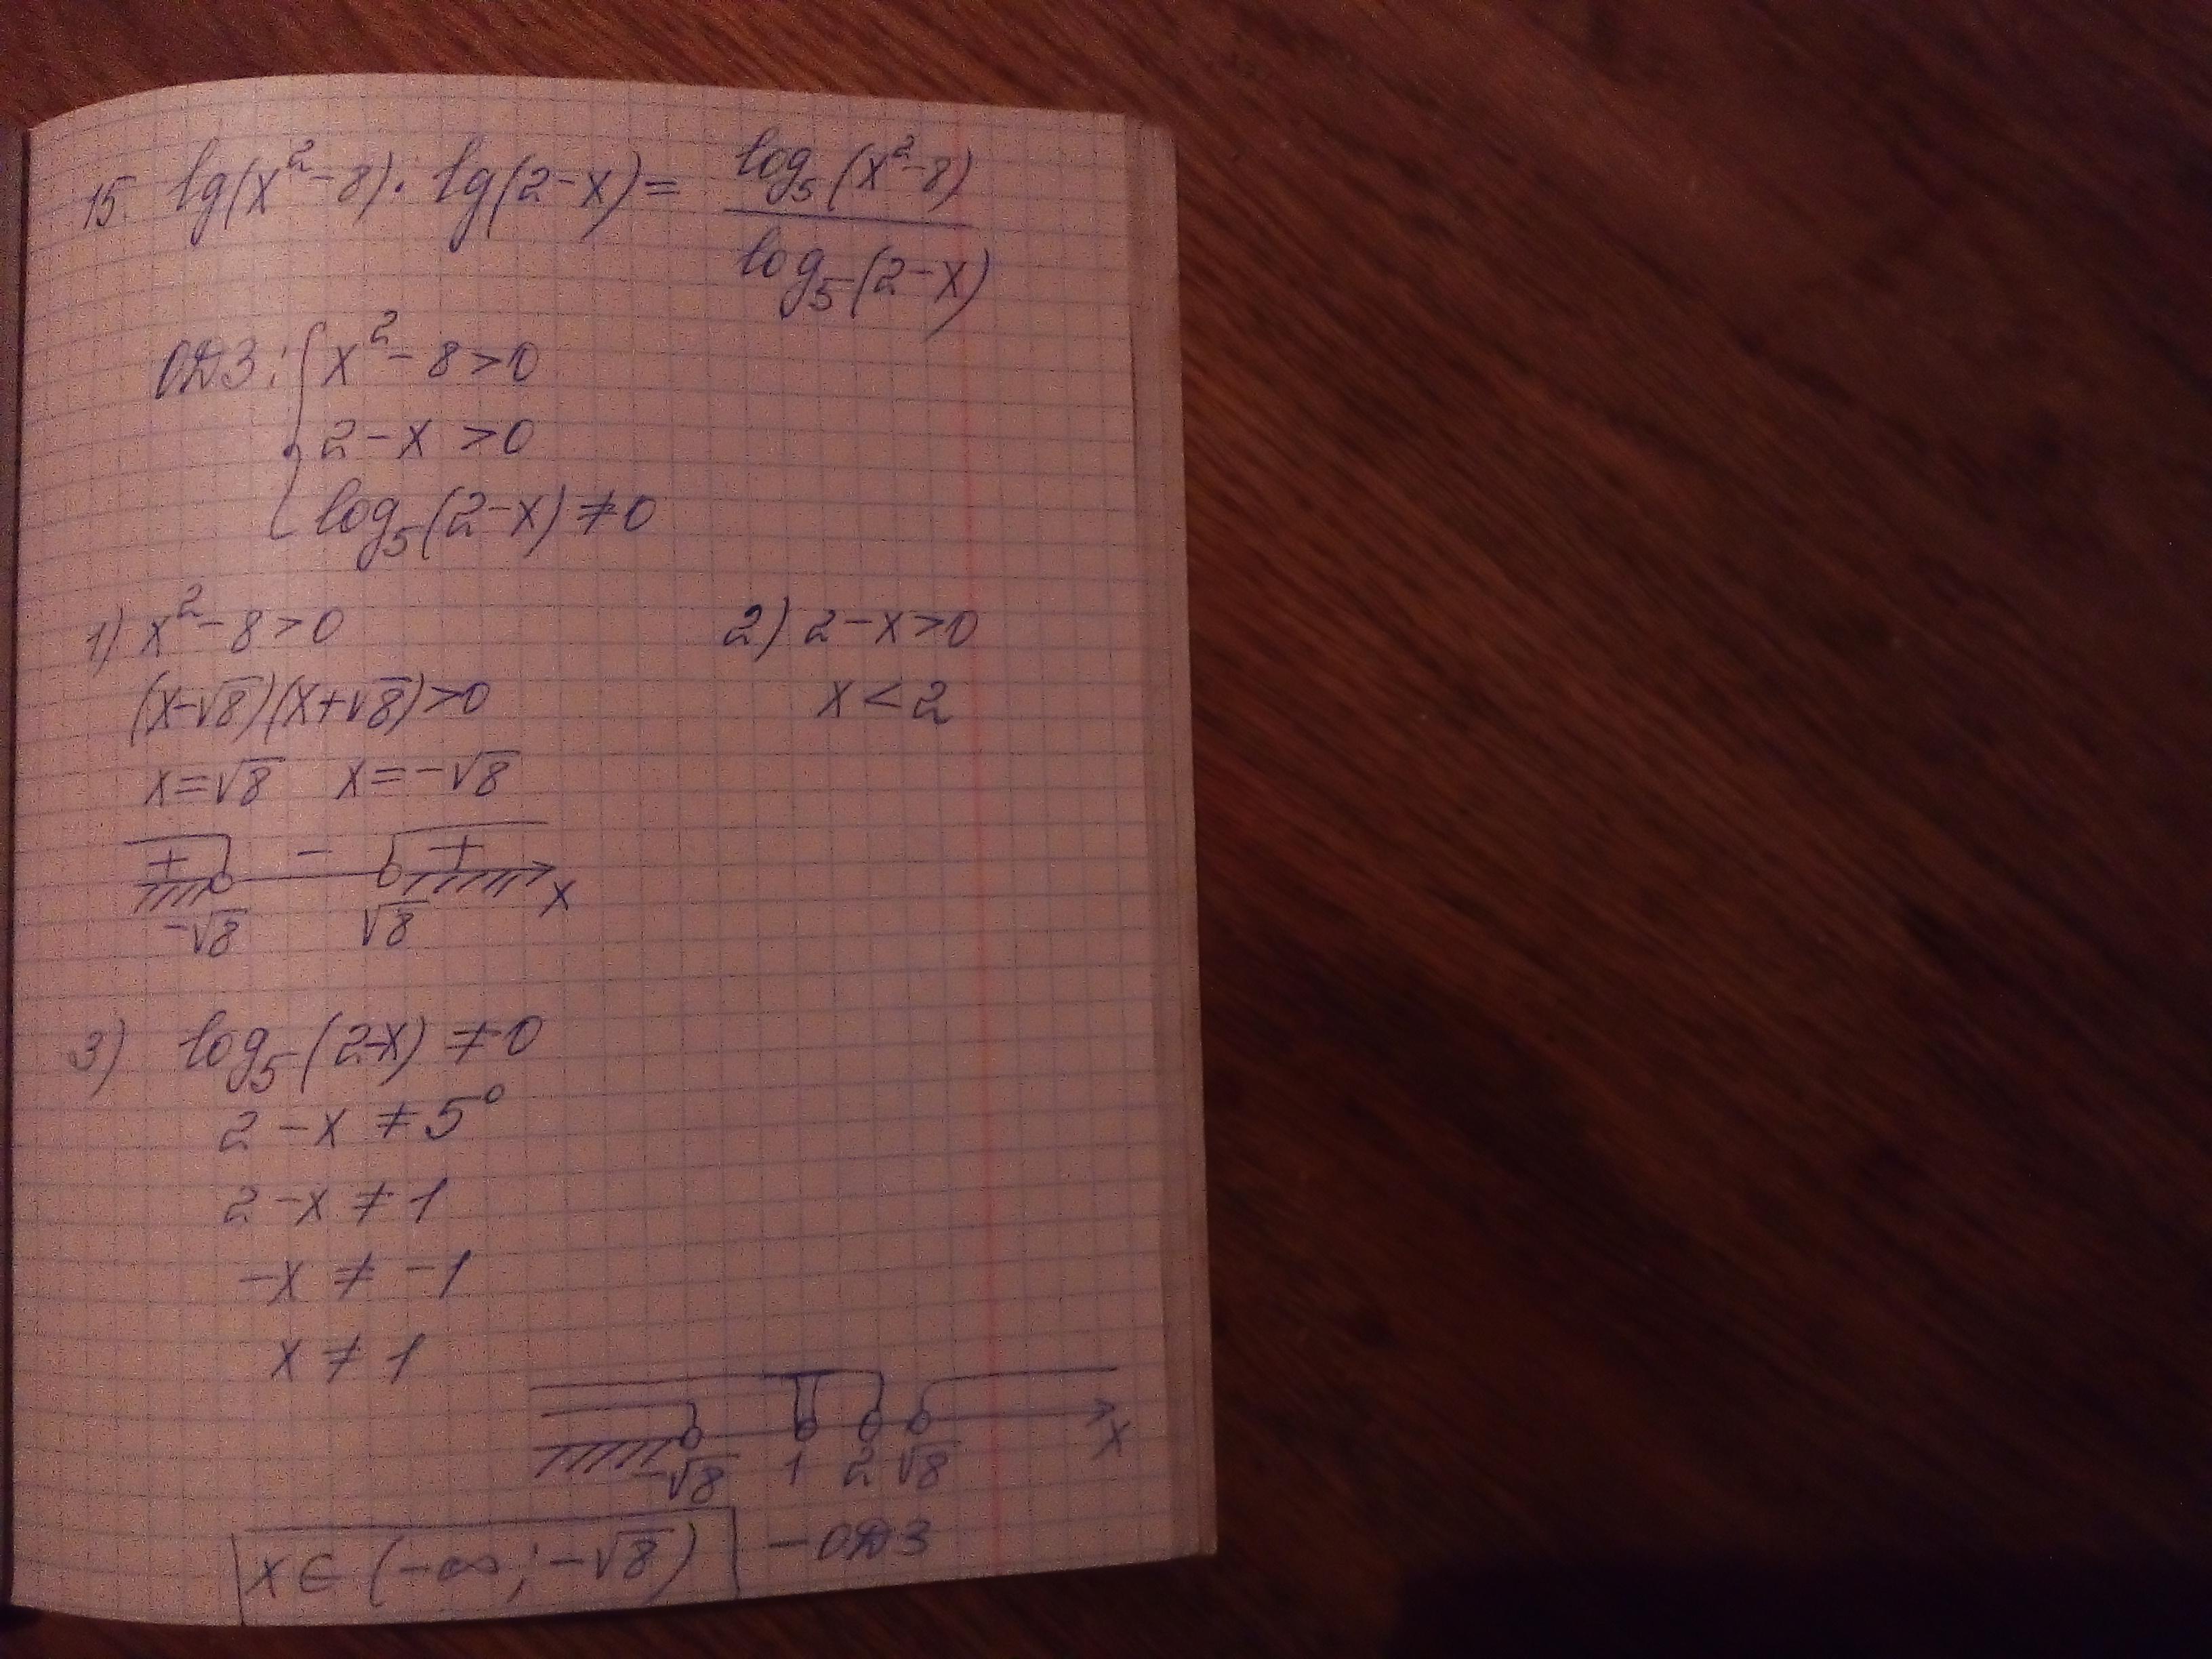 15. lg(x²-8)·lg(2-x)= log₅(x²-8) / log₅(2-x)
ОДЗ: { x²-8>0
2-x>0
log₅(2-x)≠0
1) x²-8>0
(x-√8)(x+√8)>0
x=√8 x=-√8
+ - +
-√8 √8 x
2) 2-x>0
x<2
3) log₅(2-x)≠0
2-x≠5⁰
2-x≠1
-x≠-1
x≠1
-√8 1 2 √8 x
x∈(-∞;-√8) - ОДЗ